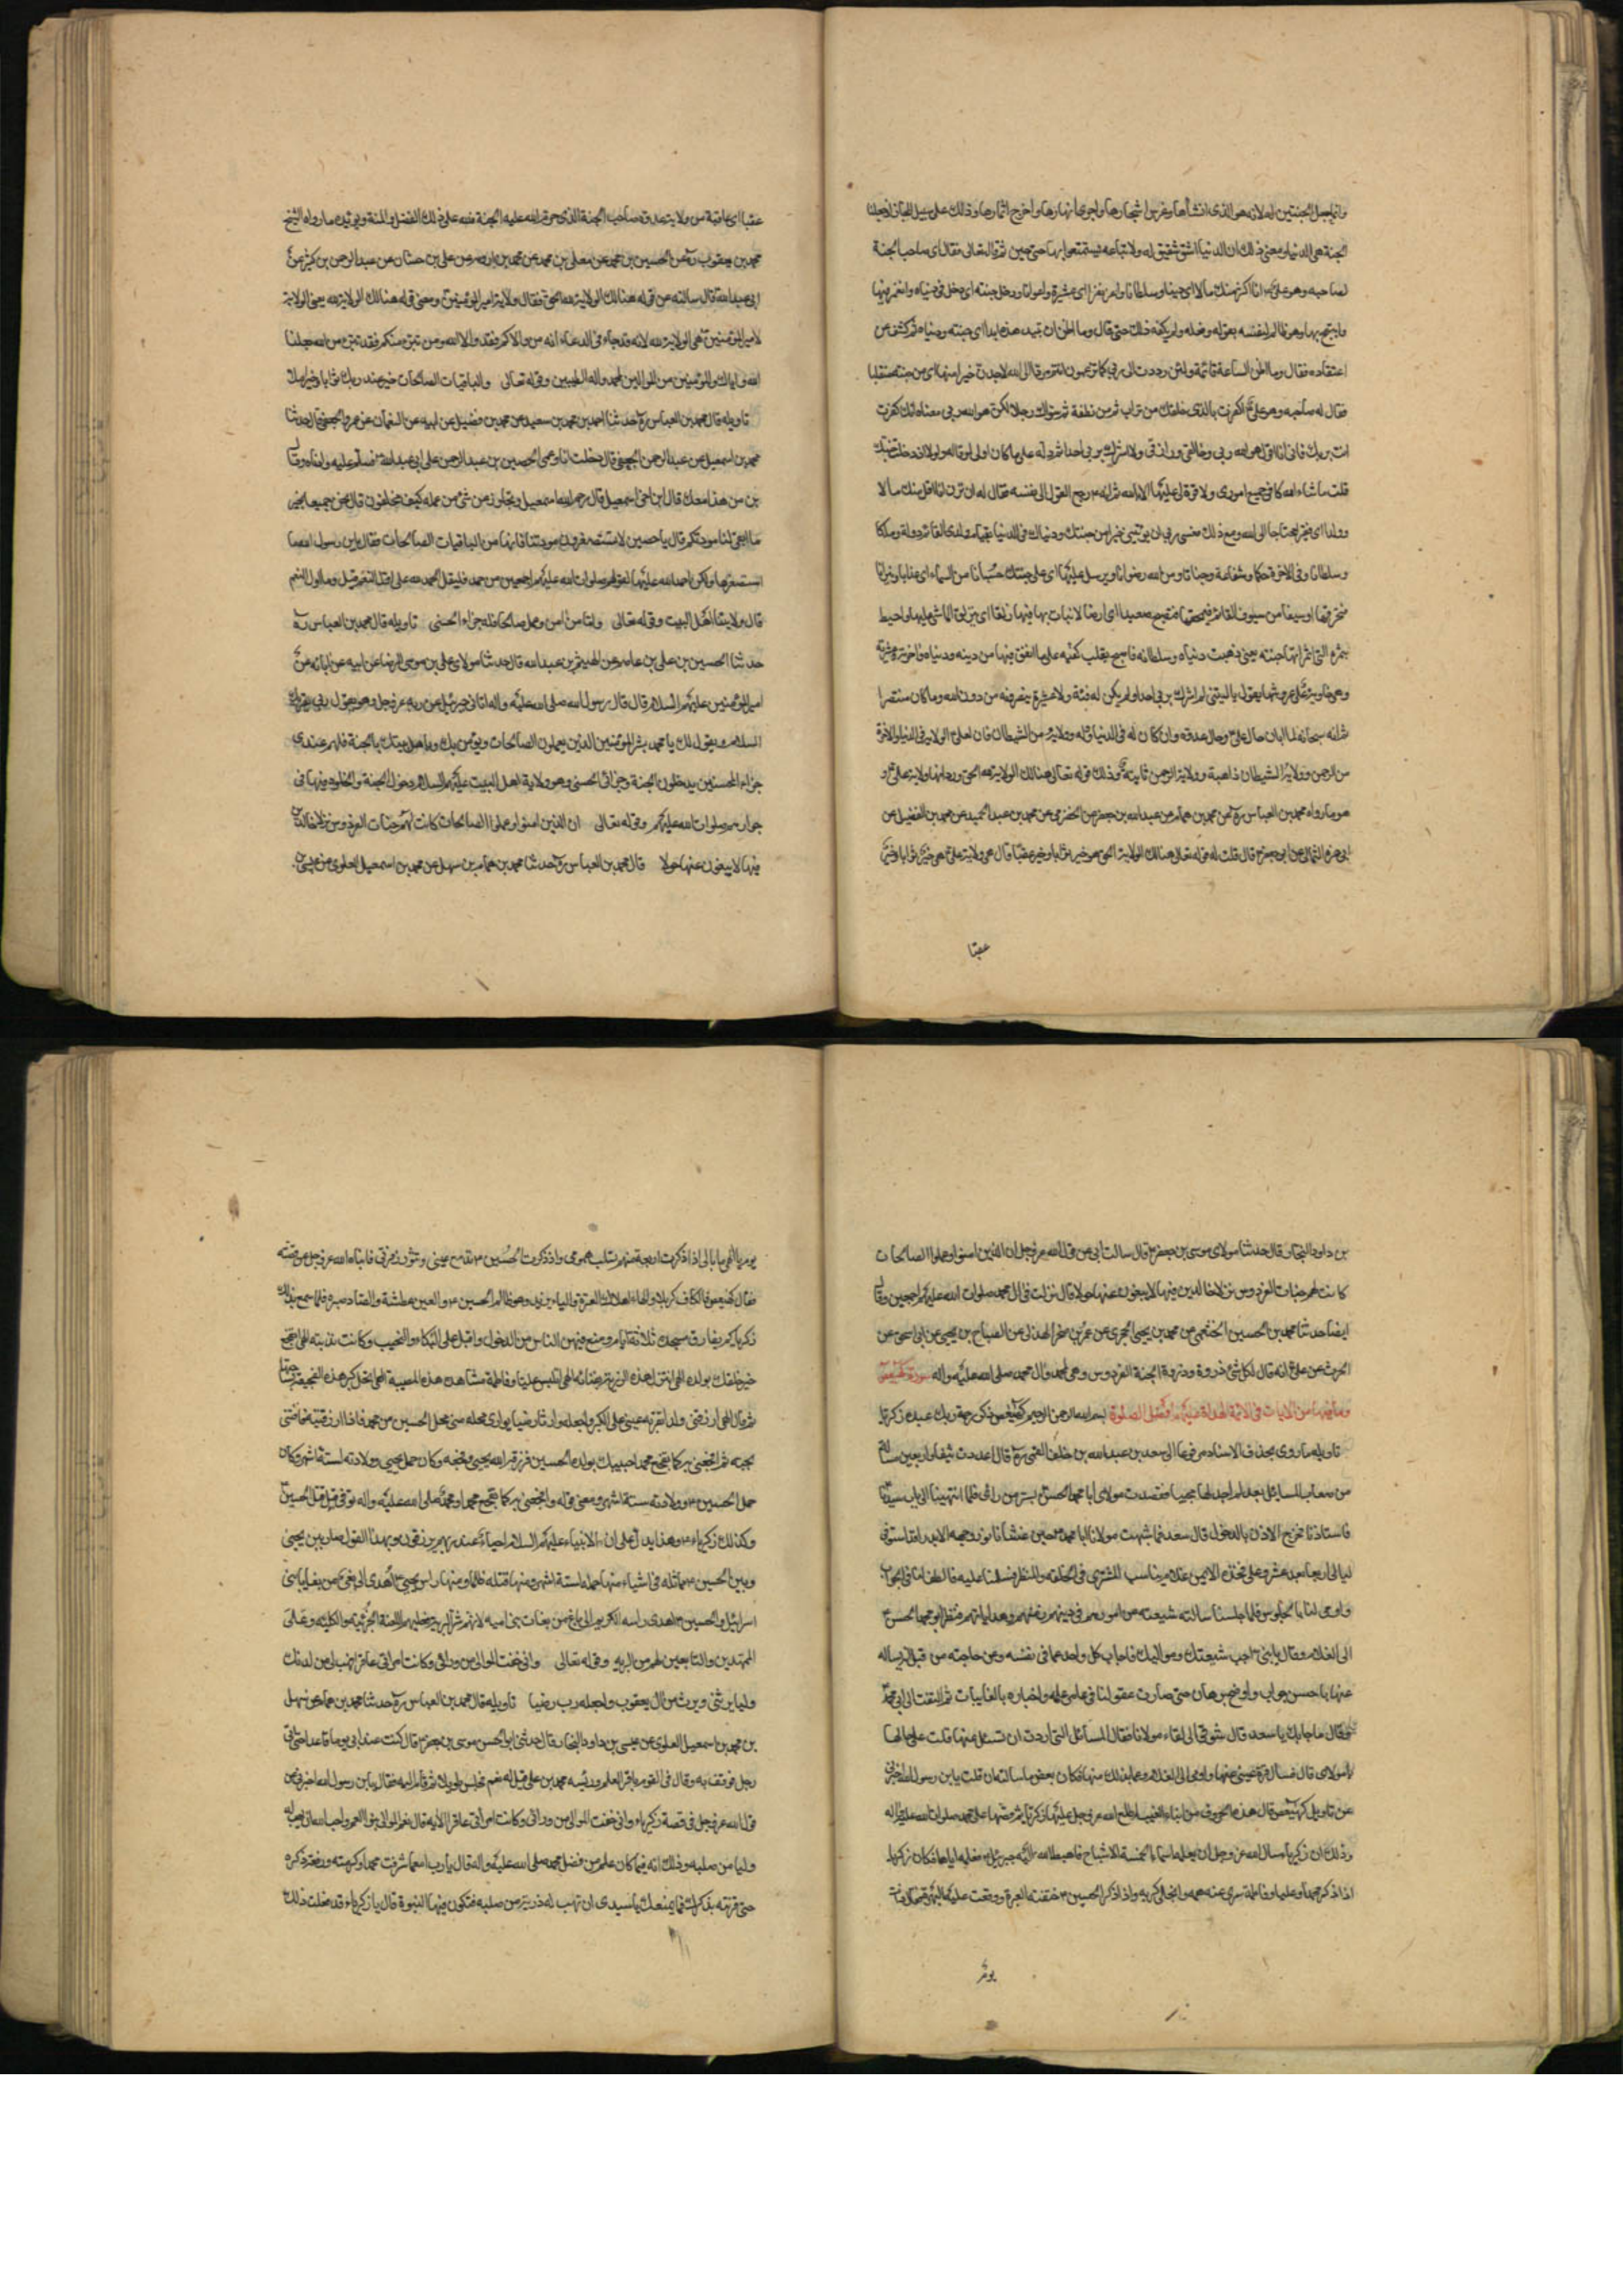 وانما جعل الجنتين له لانه هو الذي انشأها وغرس اشجارها واجرى انهارها واخرج اثمارها وذلك على سبيل المجاز اذ جعلنا
الجنة هي الدنيا ومعنى ذلك ان الدنيا له ولاتباعه ليتمتعوا بها حتى حين ثم قال تعالى فقال اي صاحب الجنة
لصاحبه وهو على انا اكثر منك مالا اي دنيا وسلطانا واعز نفرا اي عشيرة واعوانا ودخل جنته اي دخل في دنياه وانغمر فيها
وابتهج بها وهو ظالم لنفسه بقوله وفعله ولم يكفه ذلك حتى قال وما اظن ان تبيد هذه ابدا اي جنته ودنياه ثم كشف عن
اعتقاده فقال وما اظن الساعة قائمة ولئن رددت الى ربي كما تزعمون انتم مردا الى الله لاجدن خيرا منها اي من جنته منقلبا
فقال له صاحبه وهو علي اكفرت بالذي خلقك من تراب ثم من نطفة ثم سواك رجلا لكن هو الله ربي معناه انك كفرت
انت بربك فاني انا اقول هو الله ربي وخالقي ورازقي ولا اشرك بربي احدا ثم دله على ما كان اولى لو قاله ولولا اذ دخلت جنتك
قلت ما شاء الله كان في جميع اموري ولا قوة لي عليها الا بالله ثم انه رجع القول الى نفسه فقال له ان ترن انا اقل منك مالا
وولدا اي فقير محتاج الى الله ومع ذلك فعسى ربي ان يؤتيني خيرا من جنتك ودنياك في الدنيا بقيام ولدي القائم دولة وملكا
وسلطانا وفي الاخرة حكما وشفاعة وجنانا ومن الله رضوانا ويرسل عليها اي على جنتك حسبانا من السماء اي عذابا ونيرانا
فتحرقها او سيفا من سيوف القائم فيمحقها فتصبح صعيدا اي ارضا لا نبات بها فيها زلقا اي يزلق الماشي عليها واحيط
بثمره التي اثمرتها جنته يعني ذهبت دنياه وسلطانه فاصبح يقلب كفيه على ما انفق فيها من دينه ودنياه واخرته وعشيرته
وهي خاوية على عروشها يقول يا ليتني لم اشرك بربي احدا ولم يكن له فئة ولا عشيرة ينصرونه من دون الله وما كان منتصرا
ثم انه سبحانه لما ابان حال علي وحال عدوه وان كان له في الدنيا دولة وولاية من الشيطان فان لعلي الولاية في الدنيا والاخرة
من الرحمن وولاية الشيطان ذاهبة وولاية الرحمن ثابتة وذلك قوله تعالى هنالك الولاية لله الحق ورد انها ولاية علي و
هو ما رواه محمد بن العباس ره عن محمد بن همام عن عبدالله بن جعفر عن الحضرمي عن محمد بن عبد الحميد عن محمد بن الفضيل عن
ابي حمزة الثمالي عن ابي جعفر قال قلت له قوله تعالى هنالك الولاية لله الحق هو خير ثوابا وخير عقبا قال هي ولاية علي هي خير ثوابا وخير
عقبا
عقبا اي عاقبة من ولاية عدوه صاحب الجنة الذي حرم الله عليه الجنة فلله على ذلك الفضل والمنة ويؤيده ما رواه الشيخ
محمد بن يعقوب ره عن الحسين بن محمد عن معلى بن محمد عن محمد بن اورمه عن علي بن حسان عن عبد الرحمن بن كثير عن
ابي عبدالله قال سالته عن قوله هنالك الولاية لله الحق فقال ولاية امير المؤمنين ومعنى قوله هنالك الولاية لله يعني الولاية
لامير المؤمنين هي الولاية لله لانه قد جاء في الدعاء انه من والاكم فقد والا الله ومن تبرء منكم فقد تبرء من الله جعلنا
الله واياك والمؤمنين من الموالين لمحمد واله الطيبين وقوله تعالى والباقيات الصالحات خير عند ربك ثوابا وخير املا
تاويله قال محمد بن العباس ره حدثنا احمد بن محمد بن سعيد عن محمد بن فضيل عن ابيه عن النعمان عن عمرو الجعفي قال حدثنا
محمد بن اسمعيل بن عبد الرحمن الجعفي قال دخلت انا وعمي الحصين بن عبد الرحمن على ابي عبدالله فسلم عليه وادناه وقال
بن من هذا معك قال ابن اخي اسمعيل قال رحم الله اسمعيل وتجاوز عن سيئ من عمله كيف تخلفوه قال نحن جميعا بخير
ما ابقى لنا مودتكم قال يا حصين لا تستصغرون مودتنا فانها من الباقيات الصالحات فقال يابن رسول الله ما
استصغرها ولكن احمد الله عليها لقولهم صلوات الله عليهم اجمعين من حمد فليقل الحمد لله على اول النعم قيل وما اول النعم
قال ولايتنا اهل البيت وقوله تعالى واما من امن وعمل صالحا فله جزاء الحسنى تاويله قال محمد بن العباس ره
حدثنا الحسين بن علي بن عاصم عن الهيثم بن عبدالله قال حدثنا مولاي علي بن موسى الرضا عن ابيه عن ابائه عن
امير المؤمنين عليهم السلام قال قال رسول الله صلى الله عليه واله اتاني جبرئيل عن ربه عز وجل وهو يقول ربي يقرئك
السلام ويقول لك يا محمد بشر المؤمنين الذين يعملون الصالحات ويؤمن بك وباهل بيتك بالجنة فلهم عندي
جزاء الحسنى يدخلون الجنة وجزائي الحسنى وهو ولاية اهل البيت عليهم السلام دخول الجنة والخلود فيها في
جوارهم صلوات الله عليهم وقوله تعالى ان الذين امنوا وعملوا الصالحات كانت لهم جنات الفردوس نزلا خالدين
فيها لا يبغون عنها حولا قال محمد بن العباس ره حدثنا محمد بن همام بن سهيل عن محمد بن اسمعيل العلوي عن عيسى
بن داود النجار قال حدثنا مولاي موسى بن جعفر قال سالت ابي عن قول الله عز وجل ان الذين امنوا وعملوا الصالحات
كانت لهم جنات الفردوس نزلا خالدين فيها لا يبغون عنها حولا قال نزلت في ال محمد صلوات الله عليهم اجمعين وقال
ايضا حدثنا محمد بن الحسين الخثعمي عن محمد بن يحيى الحجري عن عمر بن صخر الهذلي عن الصباح بن يحيى عن ابي اسحق عن
الحرث عن علي انه قال لكل شئ ذروة وذروة الجنة الفردوس وهي لمحمد وال محمد صلى الله عليه واله سورة كهيعص
وما فيها من الايات في الائمة الهداة عليهم افضل الصلوة بسم الله الرحمن الرحيم كهيعص ذكر رحمة ربك عبده زكريا
تاويله ما روي بحذف الاسناد مرفوعا الى سعد بن عبدالله بن خلف القمي ره قال اعددت نيفا واربعين مسالة
من صعاب المسائل لم اجد لها مجيبا فقصدت مولاي ابا محمد الحسن بسر من راى فلما انتهينا الى باب سيدنا
فاستاذنا فخرج الاذن بالدخول قال سعد فما شبهت مولانا ابا محمد حين غشانا نور وجهه الا ببدر قد استوفى
ليالي اربعا بعد عشر وعلى فخذه الايمن غلام يناسب المشتري في الخلقة والمنظر فسلمنا عليه فالطف لنا في الجواب
واومى لنا بالجلوس فلما جلسنا سالته شيعته عن امورهم في دينهم وهداياهم فنظر ابو محمد الحسن
الى الغلام وقال يا بني اجب شيعتك ومواليك فاجاب كل واحد عما في نفسه وعن حاجته من قبل ان يساله
عنها باحسن جواب واوضح برهان حتى صارت عقولنا في غامر علمه واخباره بالغائبات ثم التفت الي ابو محمد
فقال ما جاء بك يا سعد قال شوقي الى لقاء مولانا فقال المسائل التي اردت ان تسئل عنها قلت على حالها
يا مولاي قال فسل قرة عيني عنها واومى الى الغلام وعما بدا لك منها فكان بعض ما سالته ان قلت يابن رسول الله اخبرني
عن تاويل كهيعص قال هذه الحروف من انباء الغيب اطلع الله عز وجل عليها زكريا ثم قصها على محمد صلوات الله عليه واله
وذلك ان زكريا سال الله عز وجل ان يعلمه اسماء الخمسة الاشباح فاهبط الله اليه جبرئيل فعلمه اياها فكان زكريا
اذا ذكر محمدا وعليا وفاطمة سري عنه همه وانجلى كربه واذا ذكر الحسين خنقته العبرة ووقعت عليه البهرة فقال ذات
يوم
يوم يا الهي ما بالي اذا ذكرت اربعة منهم تسلت همومي واذا ذكرت الحسين تدمع عيني وتثور زفرتي فانباه الله عز وجل عن قصته
فقال كهيعص فالكاف كربلا والهاء هلاك العترة والياء يزيد وهو ظالم الحسين والعين عطشه والصاد صبره فلما سمع بذلك
زكريا لم يفارق مسجده ثلثة ايام ومنع فيهن الناس من الدخول واقبل على البكاء والنحيب وكانت ندبته الهي اتفجع
خير خلقك بولده الهي اتنزل هذه الرزية بفنائه الهي اتلبس عليا وفاطمة هذه المصيبة الهي اتحل كربة هذه الفجيعة بساحتهما
ثم قال الهي ارزقني ولدا تقر به عيني على الكبر واجعله وارثا رضيا يوازي محله مني محل الحسين من محمد فاذا رزقتنيه فافتني
بحبه ثم افجعني به كما تفجع محمدا حبيبك بولده الحسين فرزقه الله يحيى وفجعه به وكان حمل يحيى وولادته لستة اشهر وكان
حمل الحسين وولادته ستة اشهر ومعنى قوله وافجعني به كما تفجع محمدا ومحمد صلى الله عليه واله توفي قبل قتل الحسين
وكذلك زكرياء وهذا يدل على ان الانبياء عليهم السلام احياء عند ربهم يرزقون وبهذا القول صار بين يحيى
وبين الحسين مماثلة في اشياء منها حمله لستة اشهر ومنها قتله ظلما ومنها راس يحيى اهدي الى بغي من بغايا بني
اسرائيل والحسين اهدي راسه الكريم الى باغ من بغات بني اميه لانهم شر البرية فعليهم اللعنة الجزئية والكلية وعلى
الممهدين والتابعين لهم من البرية وقوله تعالى واني خفت الموالي من ورائي وكانت امراتي عاقرا فهب لي من لدنك
وليا يرثني ويرث من ال يعقوب واجعله رب رضيا تاويله قال محمد بن العباس ره حدثنا محمد بن همام عن سهل
بن محمد بن اسمعيل العلوي عن عيسى بن داود النجار قال حدثني ابو الحسن موسى بن جعفر قال كنت عند ابي يوما قاعدا حتى اتى
رجل فوقف به وقال في القوم باقر العلم ورئيسه محمد بن علي قيل له نعم فجلس طويلا ثم قام اليه فقال يابن رسول الله اخبرني عن
قول الله عز وجل في قصة زكرياء واني خفت الموالي من ورائي وكانت امراتي عاقرا الاية قال نعم الموالي بنو العم واحب الله ان يهب له
وليا من صلبه وذلك انه فيما كان علم من فضل محمد صلى الله عليه واله قال يا رب امع ما شرفت محمدا وكرمته ورفعت ذكره
حتى قرنته بذكرك فما يمنعك يا سيدي ان تهب له ذرية من صلبه فتكون فيها النبوة قال يا زكرياء قد فعلت ذلك